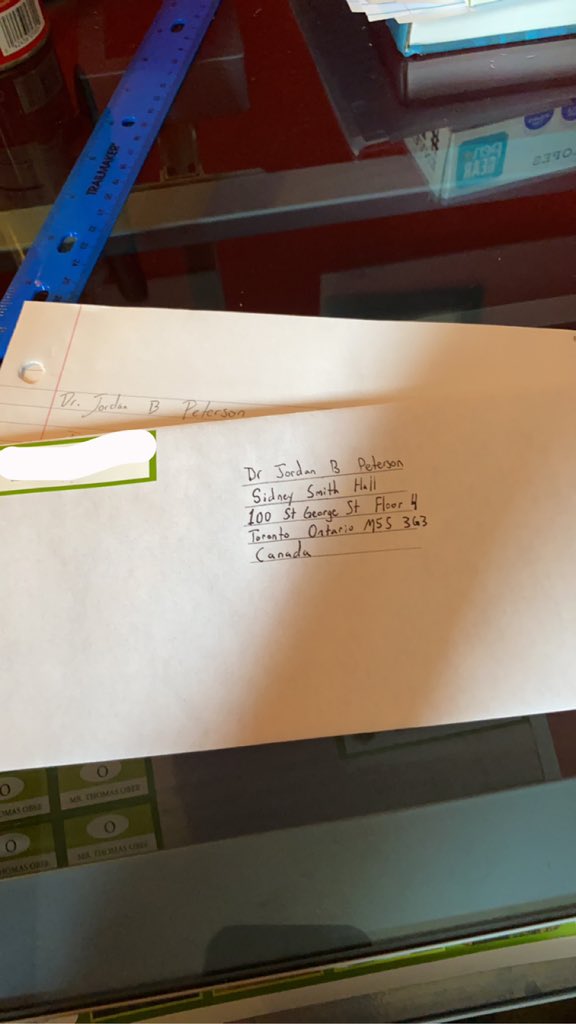 TRAILMAKER
PEN+
GEAR
OPES
Dr. Jordan B Peterson
Dr Jordan B Peterson
Sidney Smith Hall
100 St George St Floor 4
Toronto Ontario M5S 3G3
Canada
O
O
OMAS OBER
MR. THOMAS OBER
O
O
HOMAS OBER
MR. THOMAS OBER